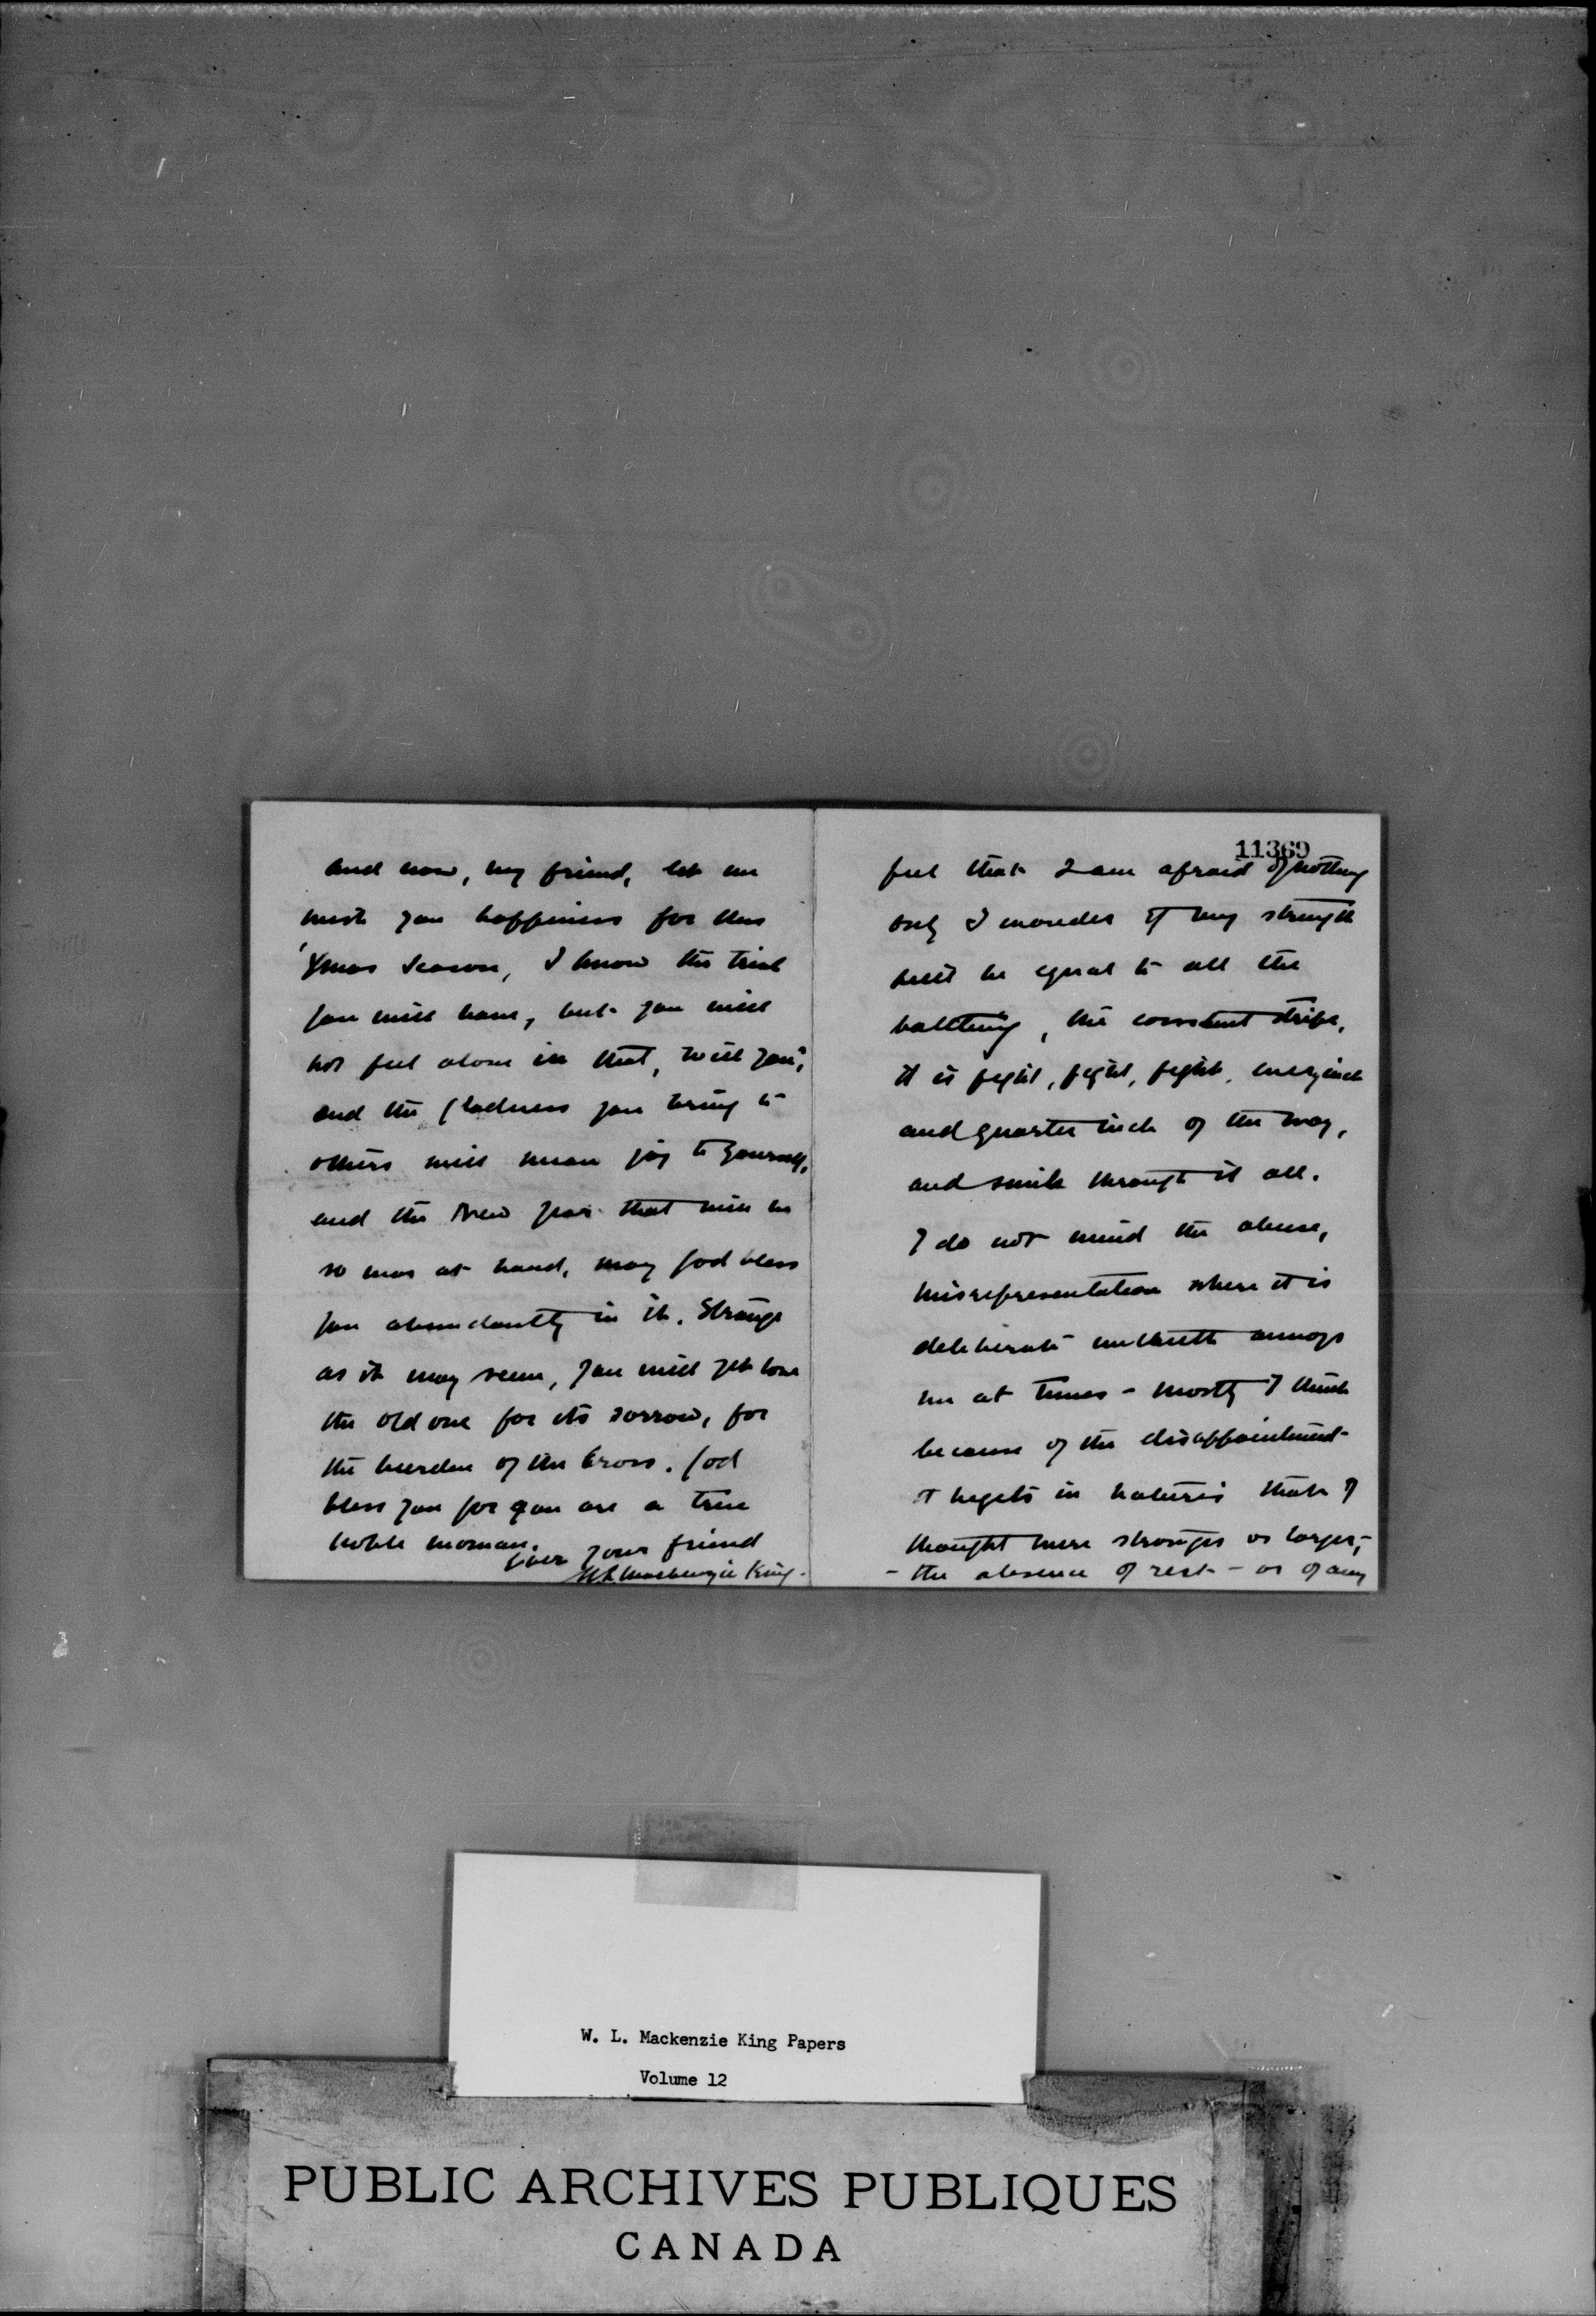 and now, my friend, let me
wish you happiness for this
'Xmas season, I know the trial
you will have, but you will
not feel alone in that, will you,
and the gladness you bring to
others will mean joy to yourself,
and the New Year that will be
so near at hand, may God bless
you abundantly in it. Strange
as it may seem, you will yet love
the old one for its sorrow, for
the burden of the Cross. God
bless you for you are a true
noble woman.
Ever your friend
W L Mackenzie King.
11369
feel that I am afraid of nothing
only I wonder if my strength
will be equal to all the
battling, the constant strife,
it is fight, fight, fight, every inch
and quarter inch of the way,
and smile through it all.
I do not mind the abuse,
misrepresentation where it is
deliberate untruth annoys
me at times - mostly I think
because of the disappointment
it begets in natures that I
thought were stronger or larger,-
- the absence of rest - or of any
W. L. Mackenzie King Papers
Volume 12
PUBLIC ARCHIVES PUBLIQUES
CANADA